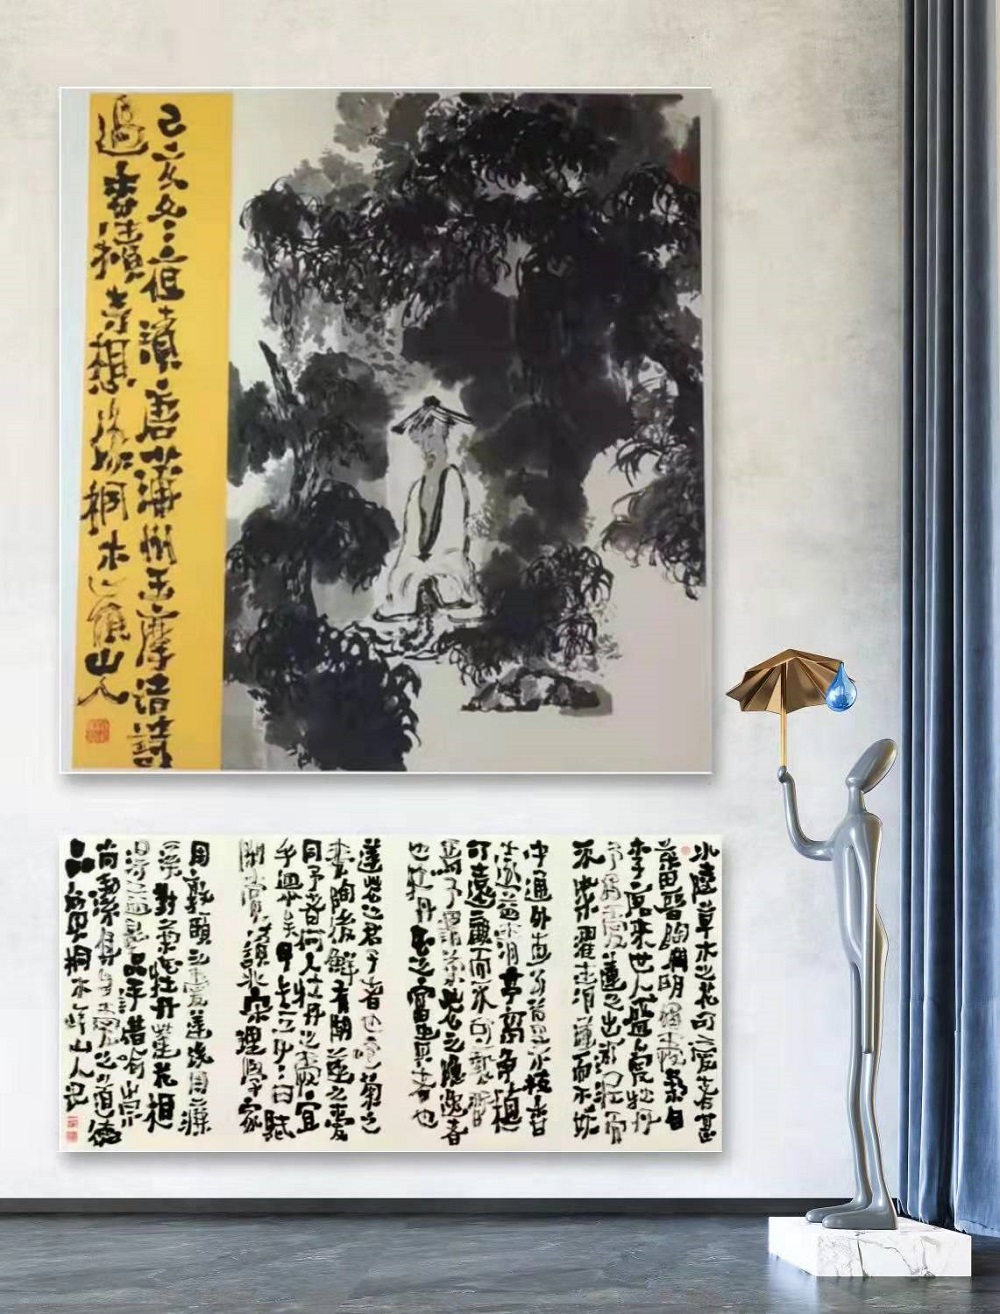 己亥冬夜讀唐蒲州王摩詰詩
過香積寺想 桐木 山人
水陸草木之花可愛者甚
蕃晉陶淵明獨愛菊自
李唐來世人盛愛牡丹
予獨愛蓮之出淤泥而
不染濯清漣而不妖
中通外直不蔓不枝香
遠益清亭亭淨植
可遠觀而不可褻翫
焉予謂菊花之隱逸者
也牡丹花之富貴者也
蓮花之君子者也噫菊之
愛陶後鮮有聞蓮之愛
同予者何人牡丹之愛宜
乎眾矣甲辰 日賦
閑賞讀北宋理學家
周敦頤之愛蓮說周濂
溪對菊花牡丹蓮花相
品手法借喻崇
尚潔身 愛之道德
品 桐木 山人記